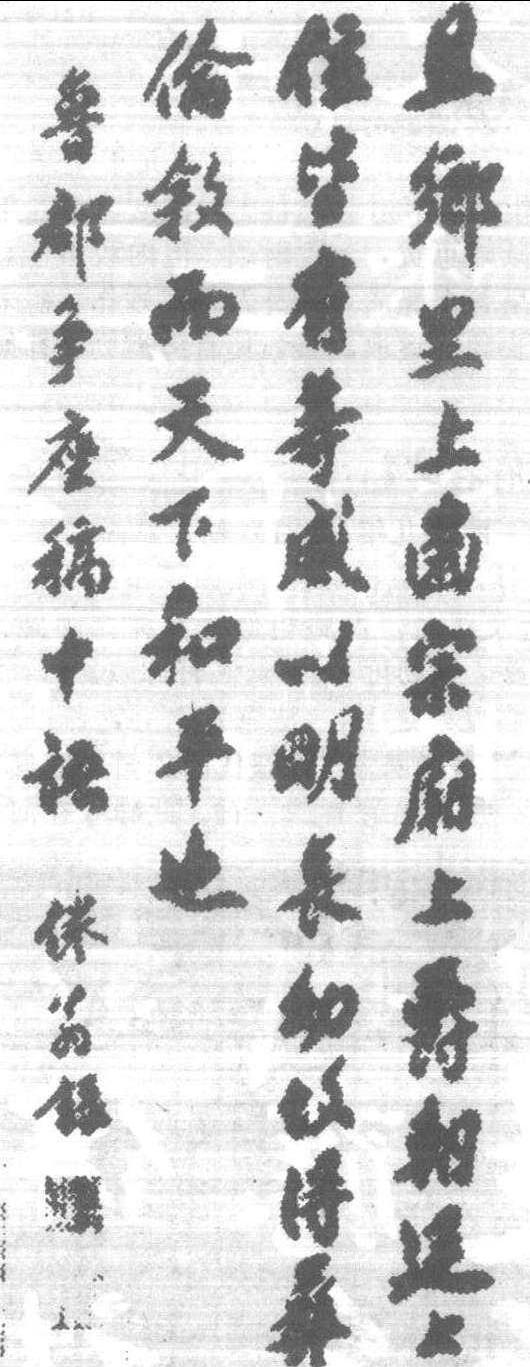 且鄉里上齒宗廟上爵朝廷上
位皆有等威以明長幼故得彝
倫敘而天下和平也
魯郡爭座稿十語 倦翁録